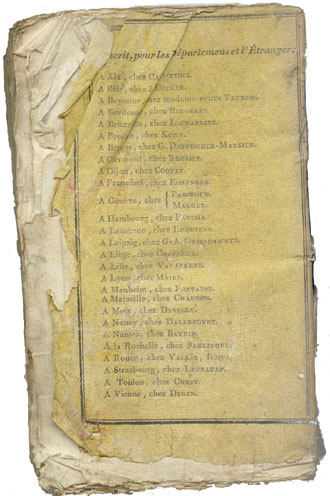 scrit, pour les Départemens et l'Étranger:
A Aix, chez
A Bâle, chez J. DECKER.
A Bayonne, chez madame veuve
A Bordeaux, chez BERGERET.
A Bruxelles, chez LECHARLIER.
A Breslau, chez KORN.
A Bruges, chez G. DEBUSSCHER-MARLIER.
A Clermont, chez ROUSSET.
A Dijon, chez COQUET.
A Francfort, chez ESSLINGER.
A Genève, chez { PASCHOUD. MANGET.
A Hambourg, chez FAUCHE.
A Lausanne, chez
A Leipzig, chez
A Liège, chez
A Lille, chez VANACKERE.
A Lyon, chez MAIRE.
A Manheim, chez FONTAINE.
A Marseille, chez CHARDON.
A Metz, chez DEVILLY.
A Nancy, chez DALANCOURT.
A Nantes, chez BAUDIN.
A la Rochelle, chez
A Rouen, chez VALLÉE, frères.
A Strasbourg, chez LEVRAULT.
A Toulon, chez CURET.
A Vienne, chez DEGEN.